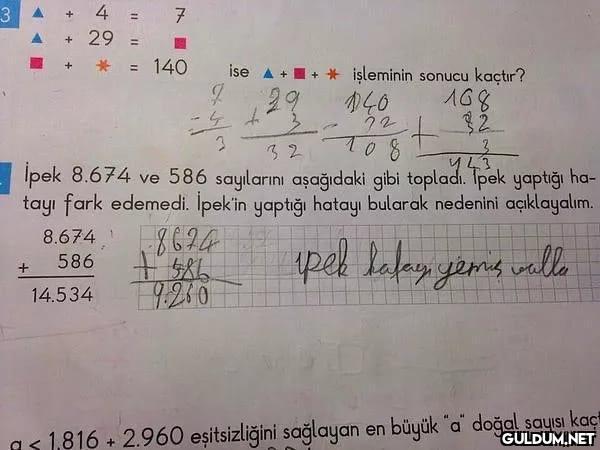 3 ▲ + 4 = 7
▲ + 29 = ■
■ + ✶ = 140 ise ▲ + ■ + ✶ işleminin sonucu kaçtır?
7 29 140 108
- 4 + 3 - 32 + 32
3 32 108 3
143
İpek 8.674 ve 586 sayılarını aşağıdaki gibi topladı. İpek yaptığı ha-
tayı fark edemedi. İpek'in yaptığı hatayı bularak nedenini açıklayalım.
8.674 8674
+ 586 + 586 ipek kafayı yemiş valla
14.534 9.260
a < 1.816 + 2.960 eşitsizliğini sağlayan en büyük "a" doğal sayısı kaçt
GULDUM.NET